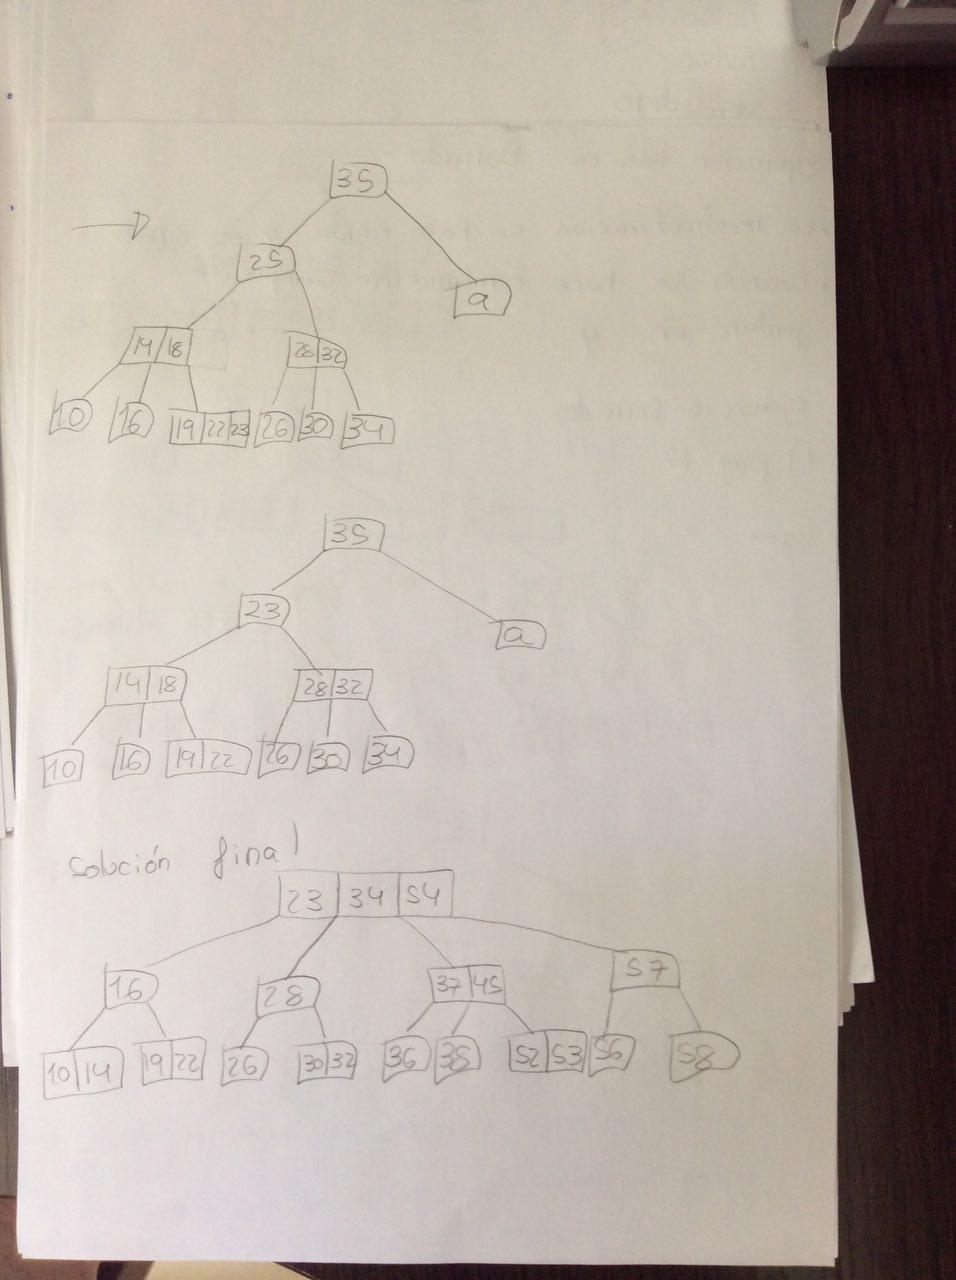 35
25
a
14 18 28 32
10 16 19 22 23 26 30 34
35
23
a
14 18 28 32
10 16 19 22 26 30 34
Solución final
23 34 54
16 28 37 45 57
10 14 19 22 26 30 32 36 38 52 53 56 58